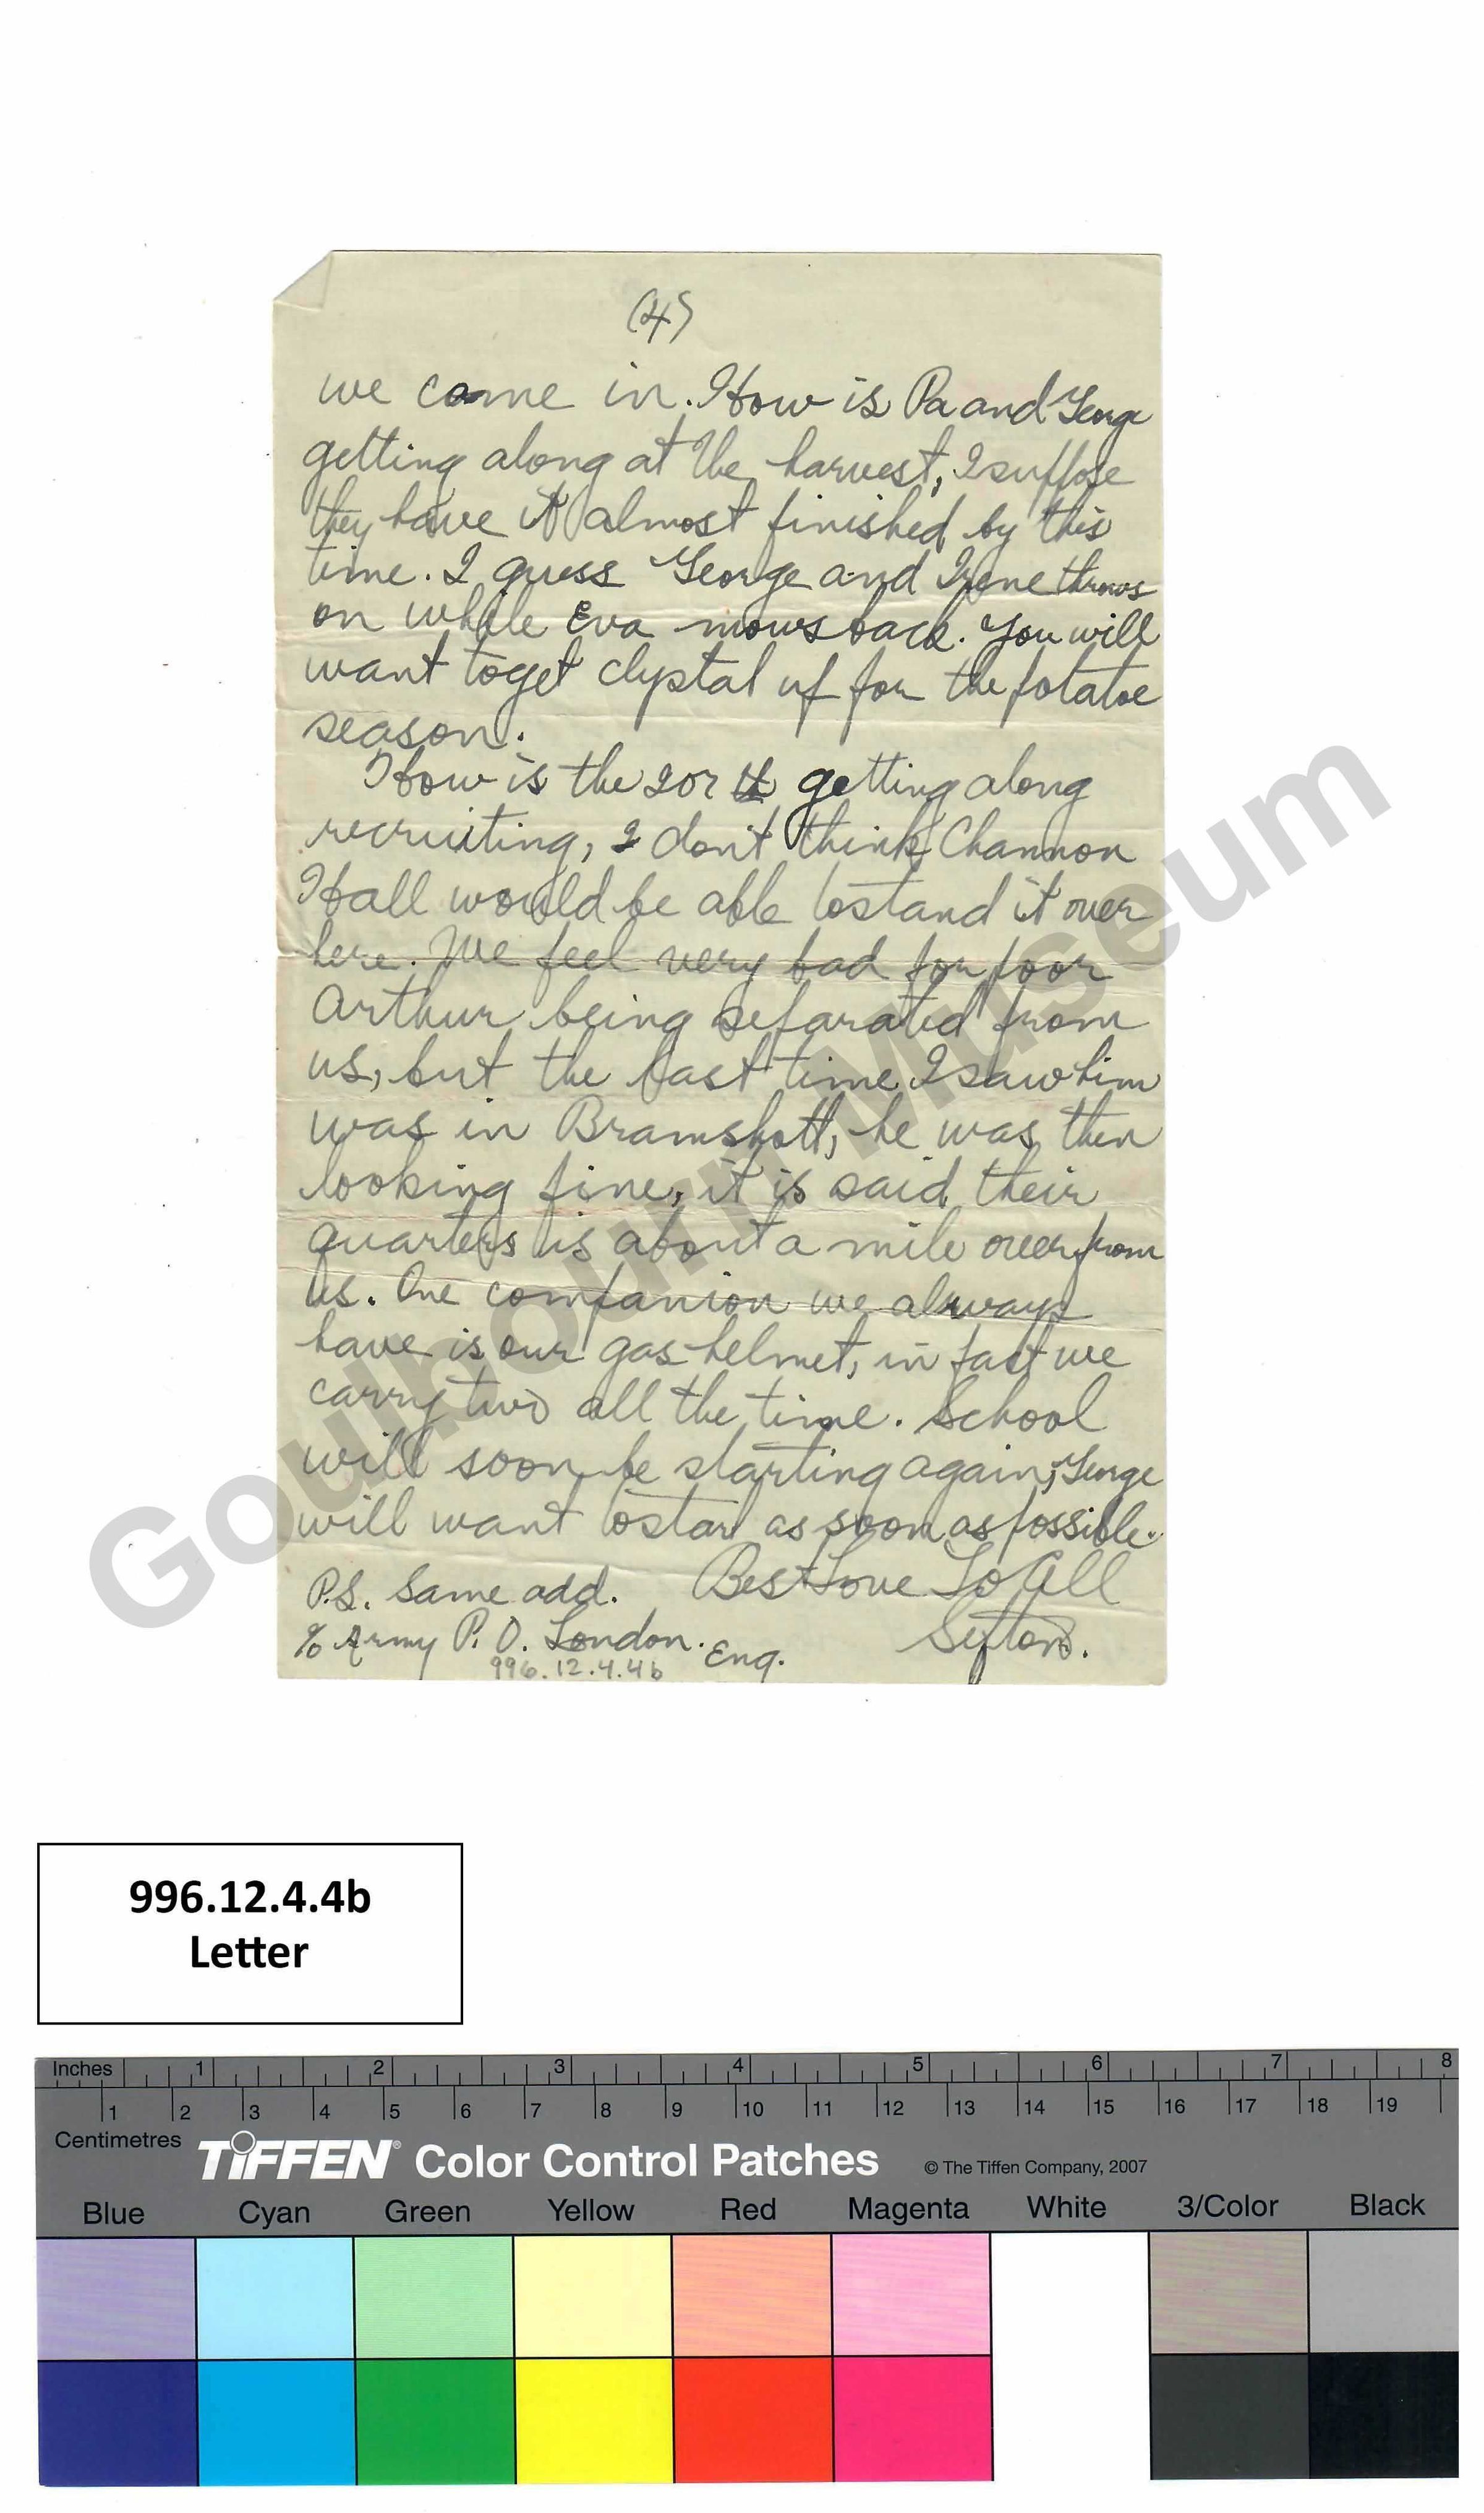 (4)
we came in. How is Pa and George
getting along at the harvest, I suppose
they have it almost finished by this
time. I guess George and Irene throws
on while Eva mows back. You will
want to get up for the potatoe
season.
How is the 207 th getting along
recruiting, I don't think Channon
Hall would be able to stand it over
here. We feel very bad for poor
Arthur being separated from
us, but the last time I saw him
was in Bramshott, he was then
looking fine, it is said their
quarters is about a mile over from
us. One companion we always
have is our gas-helmet, in fact we
carry two all the time. School
will soon be starting again, George
will want to star as soon as possible.
Best Love To All
Sefton.
P.S. Same add.
c/o Army P. O. London. Eng.
996.12.4.4b
Goulbourn Museum
996.12.4.4b
Letter
Inches 1 2 3 4 5 6 7 8
1 2 3 4 5 6 7 8 9 10 11 12 13 14 15 16 17 18 19
Centimetres
TIFFEN® Color Control Patches © The Tiffen Company, 2007
Blue Cyan Green Yellow Red Magenta White 3/Color Black